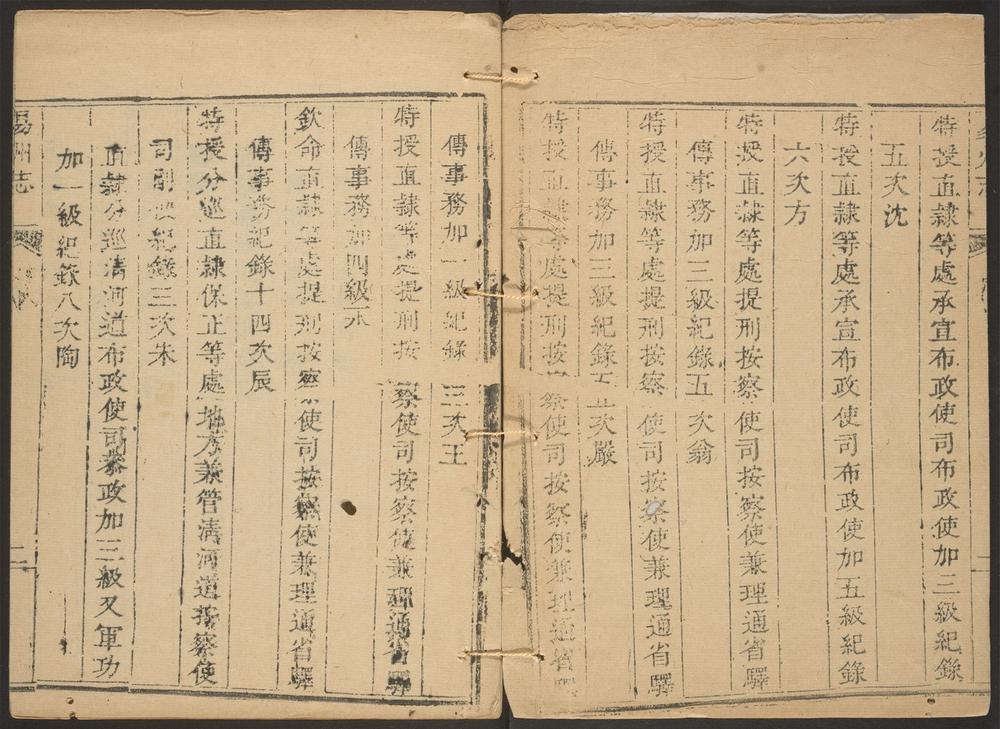 特授直隷等處承宣布政使司布政使加三級紀錄
五次沈
特授直隷等處承宣布政使司布政使加五級紀錄
六次方
特授直隷等處提刑按察使司按察使兼理通省驛
傳事務加三級紀錄五次翁
特授直隷等處提刑按察使司按察使兼理通省驛
傳事務加三級紀錄五次嚴
特授直隷等處提刑按察使司按察使兼理通省驛
傳事務加一級紀錄三次王
特授直隷等處提刑按察使司按察使兼理通省驛
傳事務加四級永
欽命直隷等處提刑按察使司按察使兼理通省驛
傳事務紀錄十四次辰
特授分巡直隷保正等處地方兼管清河道按察使
司副使紀錄三次朱
直隷分巡清河道布政使司叅政加三級又軍功
加一級紀錄八次陶
易州志
二